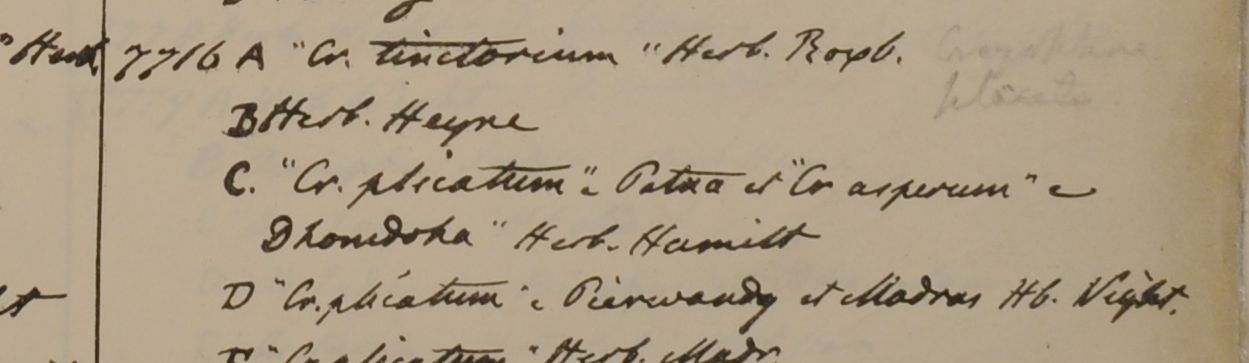 " Herb. 7716 A "Cr. tinctorium" Herb. Roxb. Crozophora plicata
B Herb. Heyne
C. "Cr. plicatum" e Patna et "Cr asperum" e
Dhomdoha" Herb. Hamilt
D "Cr. plicatum" e Pierwandy et Madras Hb. Wight.
E "Cr plicatum" Herb. Madr.